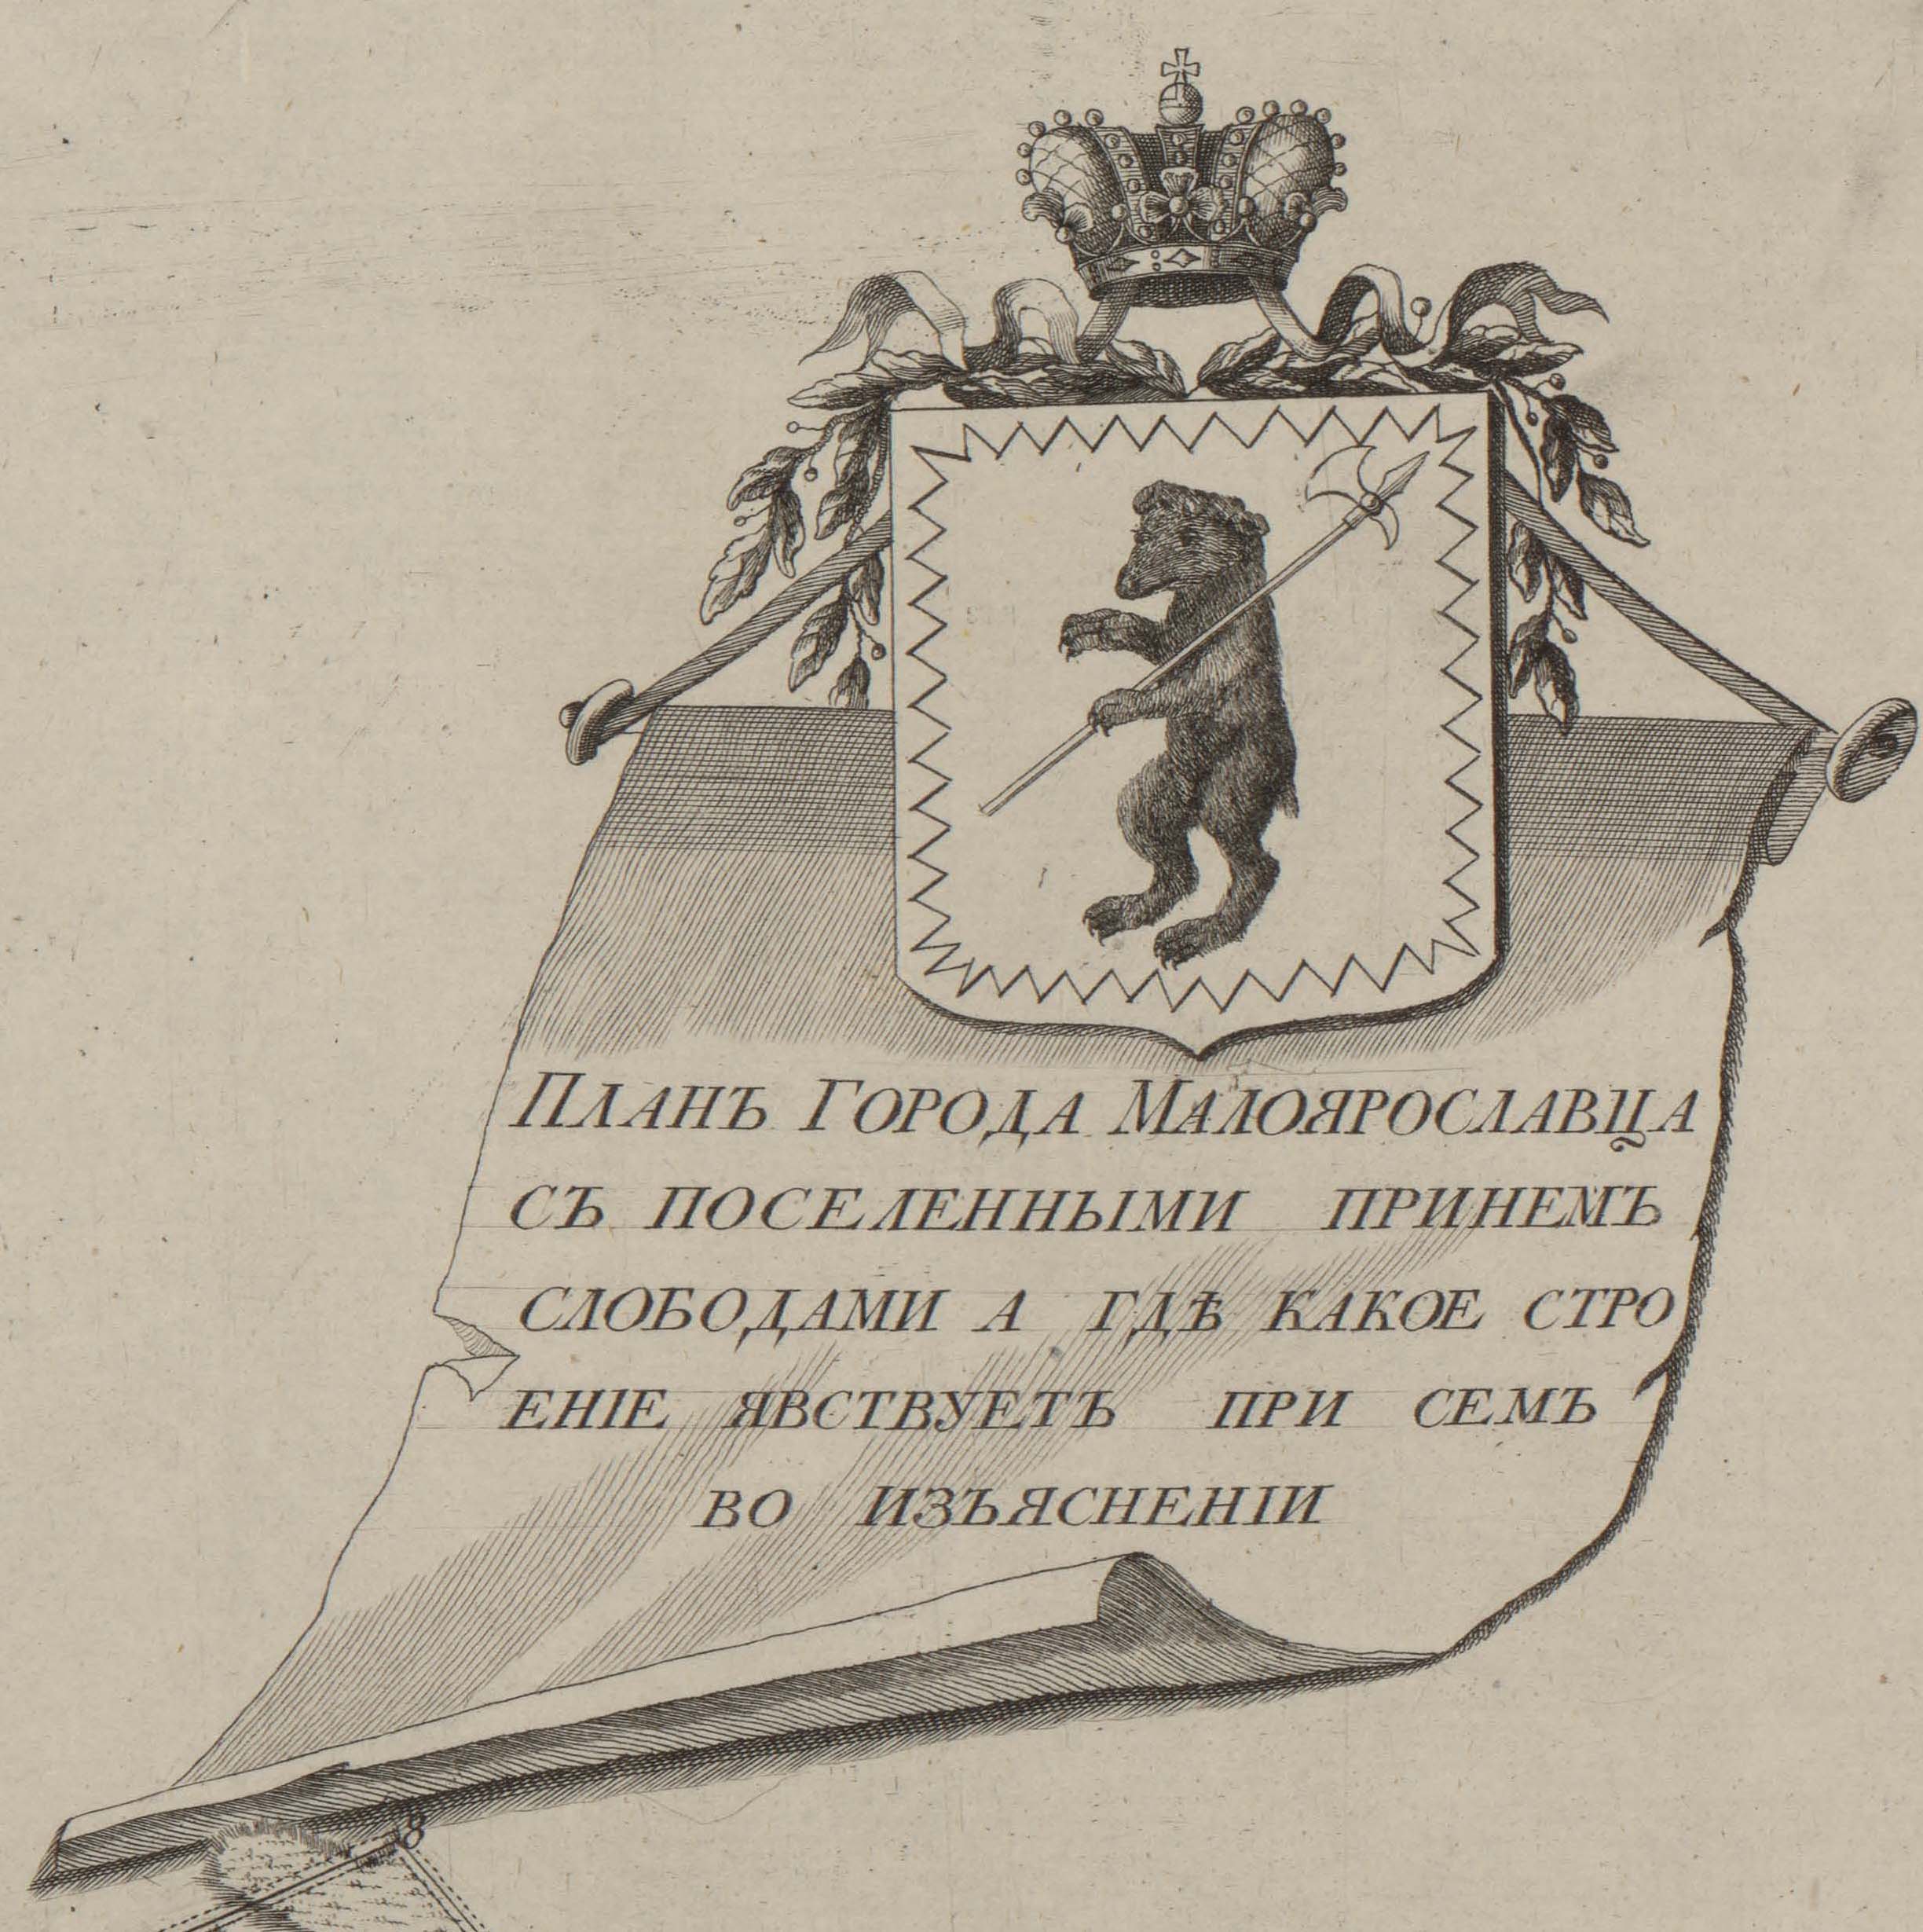 Планъ Города Малоярославца
съ поселенными принемъ
слободами а гдѣ какое стро
енiе явствуетъ при семъ
во изъясненiи
8